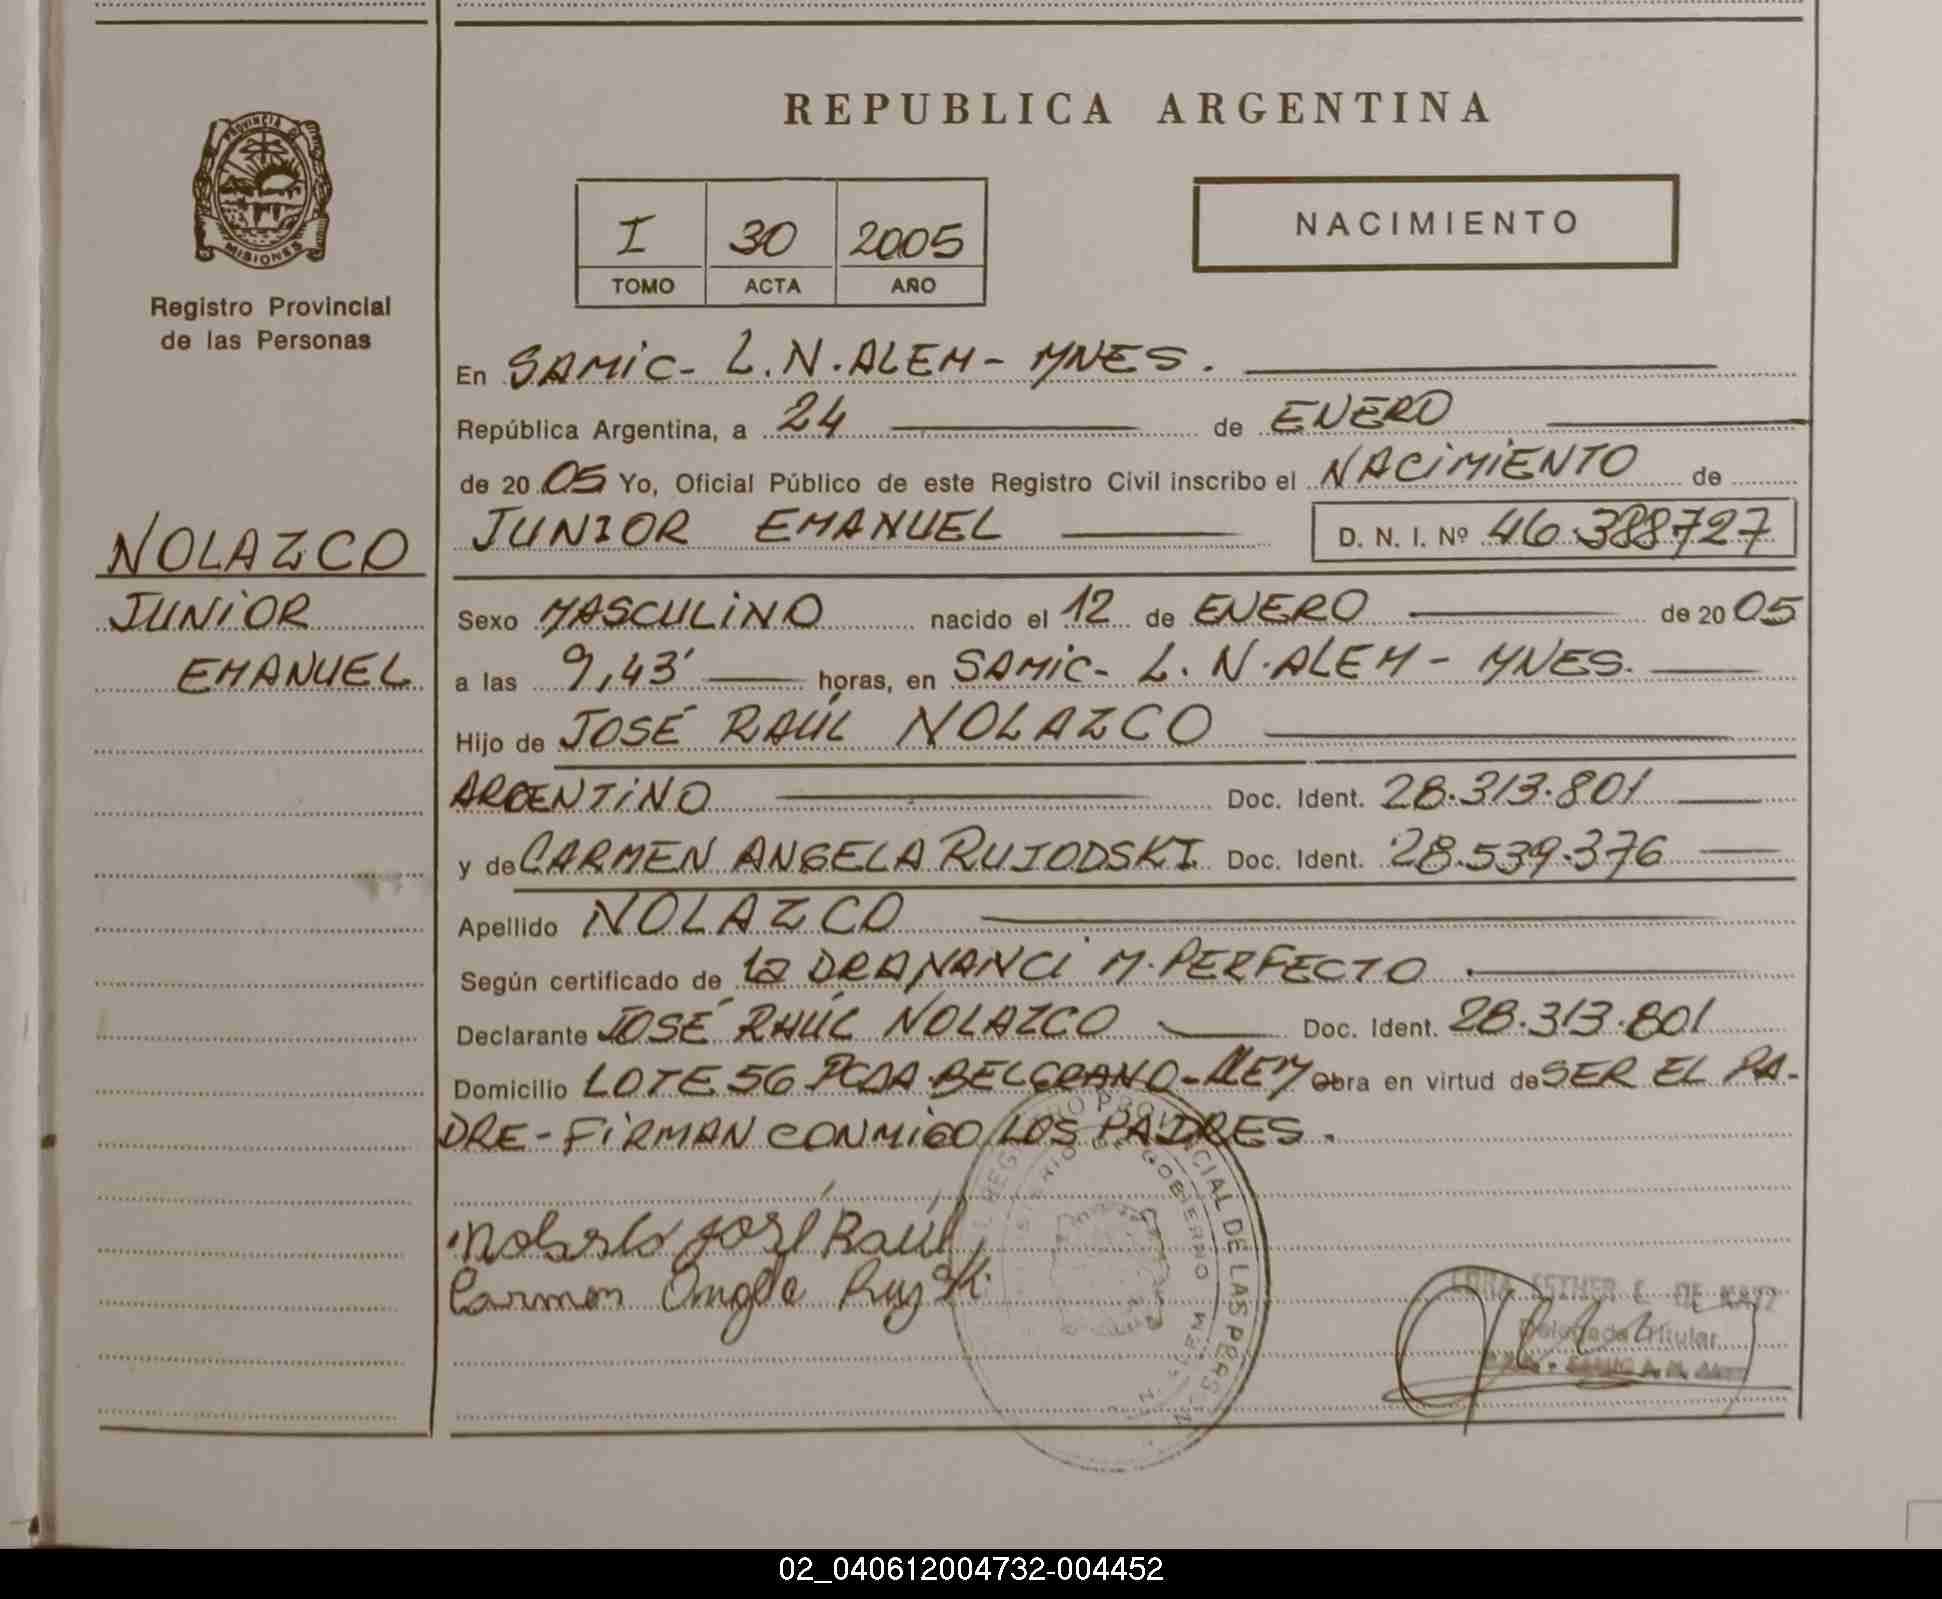 REPUBLICA ARGENTINA
PROVINCIA DE
MISIONES
Registro Provincial
de las Personas
I 30 2005
TOMO ACTA AÑO
NACIMIENTO
En SAMIC- L.N.ALEM- MNES.
República Argentina, a 24 de ENERO
de 2005 Yo, Oficial Público de este Registro Civil inscribo el NACIMIENTO de
JUNIOR EMANUEL D. N. I. Nº 46.388727
NOLAZCO
JUNIOR
EMANUEL
Sexo MASCULINO nacido el 12 de ENERO de 2005
a las 9,43' horas, en SAMIC- L. N. ALEM - MNES.
Hijo de JOSÉ RAÚL NOLAZCO
ARGENTINO Doc. Ident. 28.313.801
y de CARMEN ANGELA RUJODSKI Doc. Ident. 28.539.376
Apellido NOLAZCO
Según certificado de la DRA NANCI M. PERFECTO
Declarante JOSÉ RAÚL NOLAZCO Doc. Ident. 28.313.801
Domicilio LOTE 56 PCDA BELGRANO-ALEM Obra en virtud de SER EL PA-
DRE-FIRMAN CONMIGO LOS PADRES.
José Raúl
Carmen
REGISTRO PROVINCIAL DE LAS PERSONAS
GOBIERNO
ESTHER E. DE
Delegada Titular
02_040612004732-004452